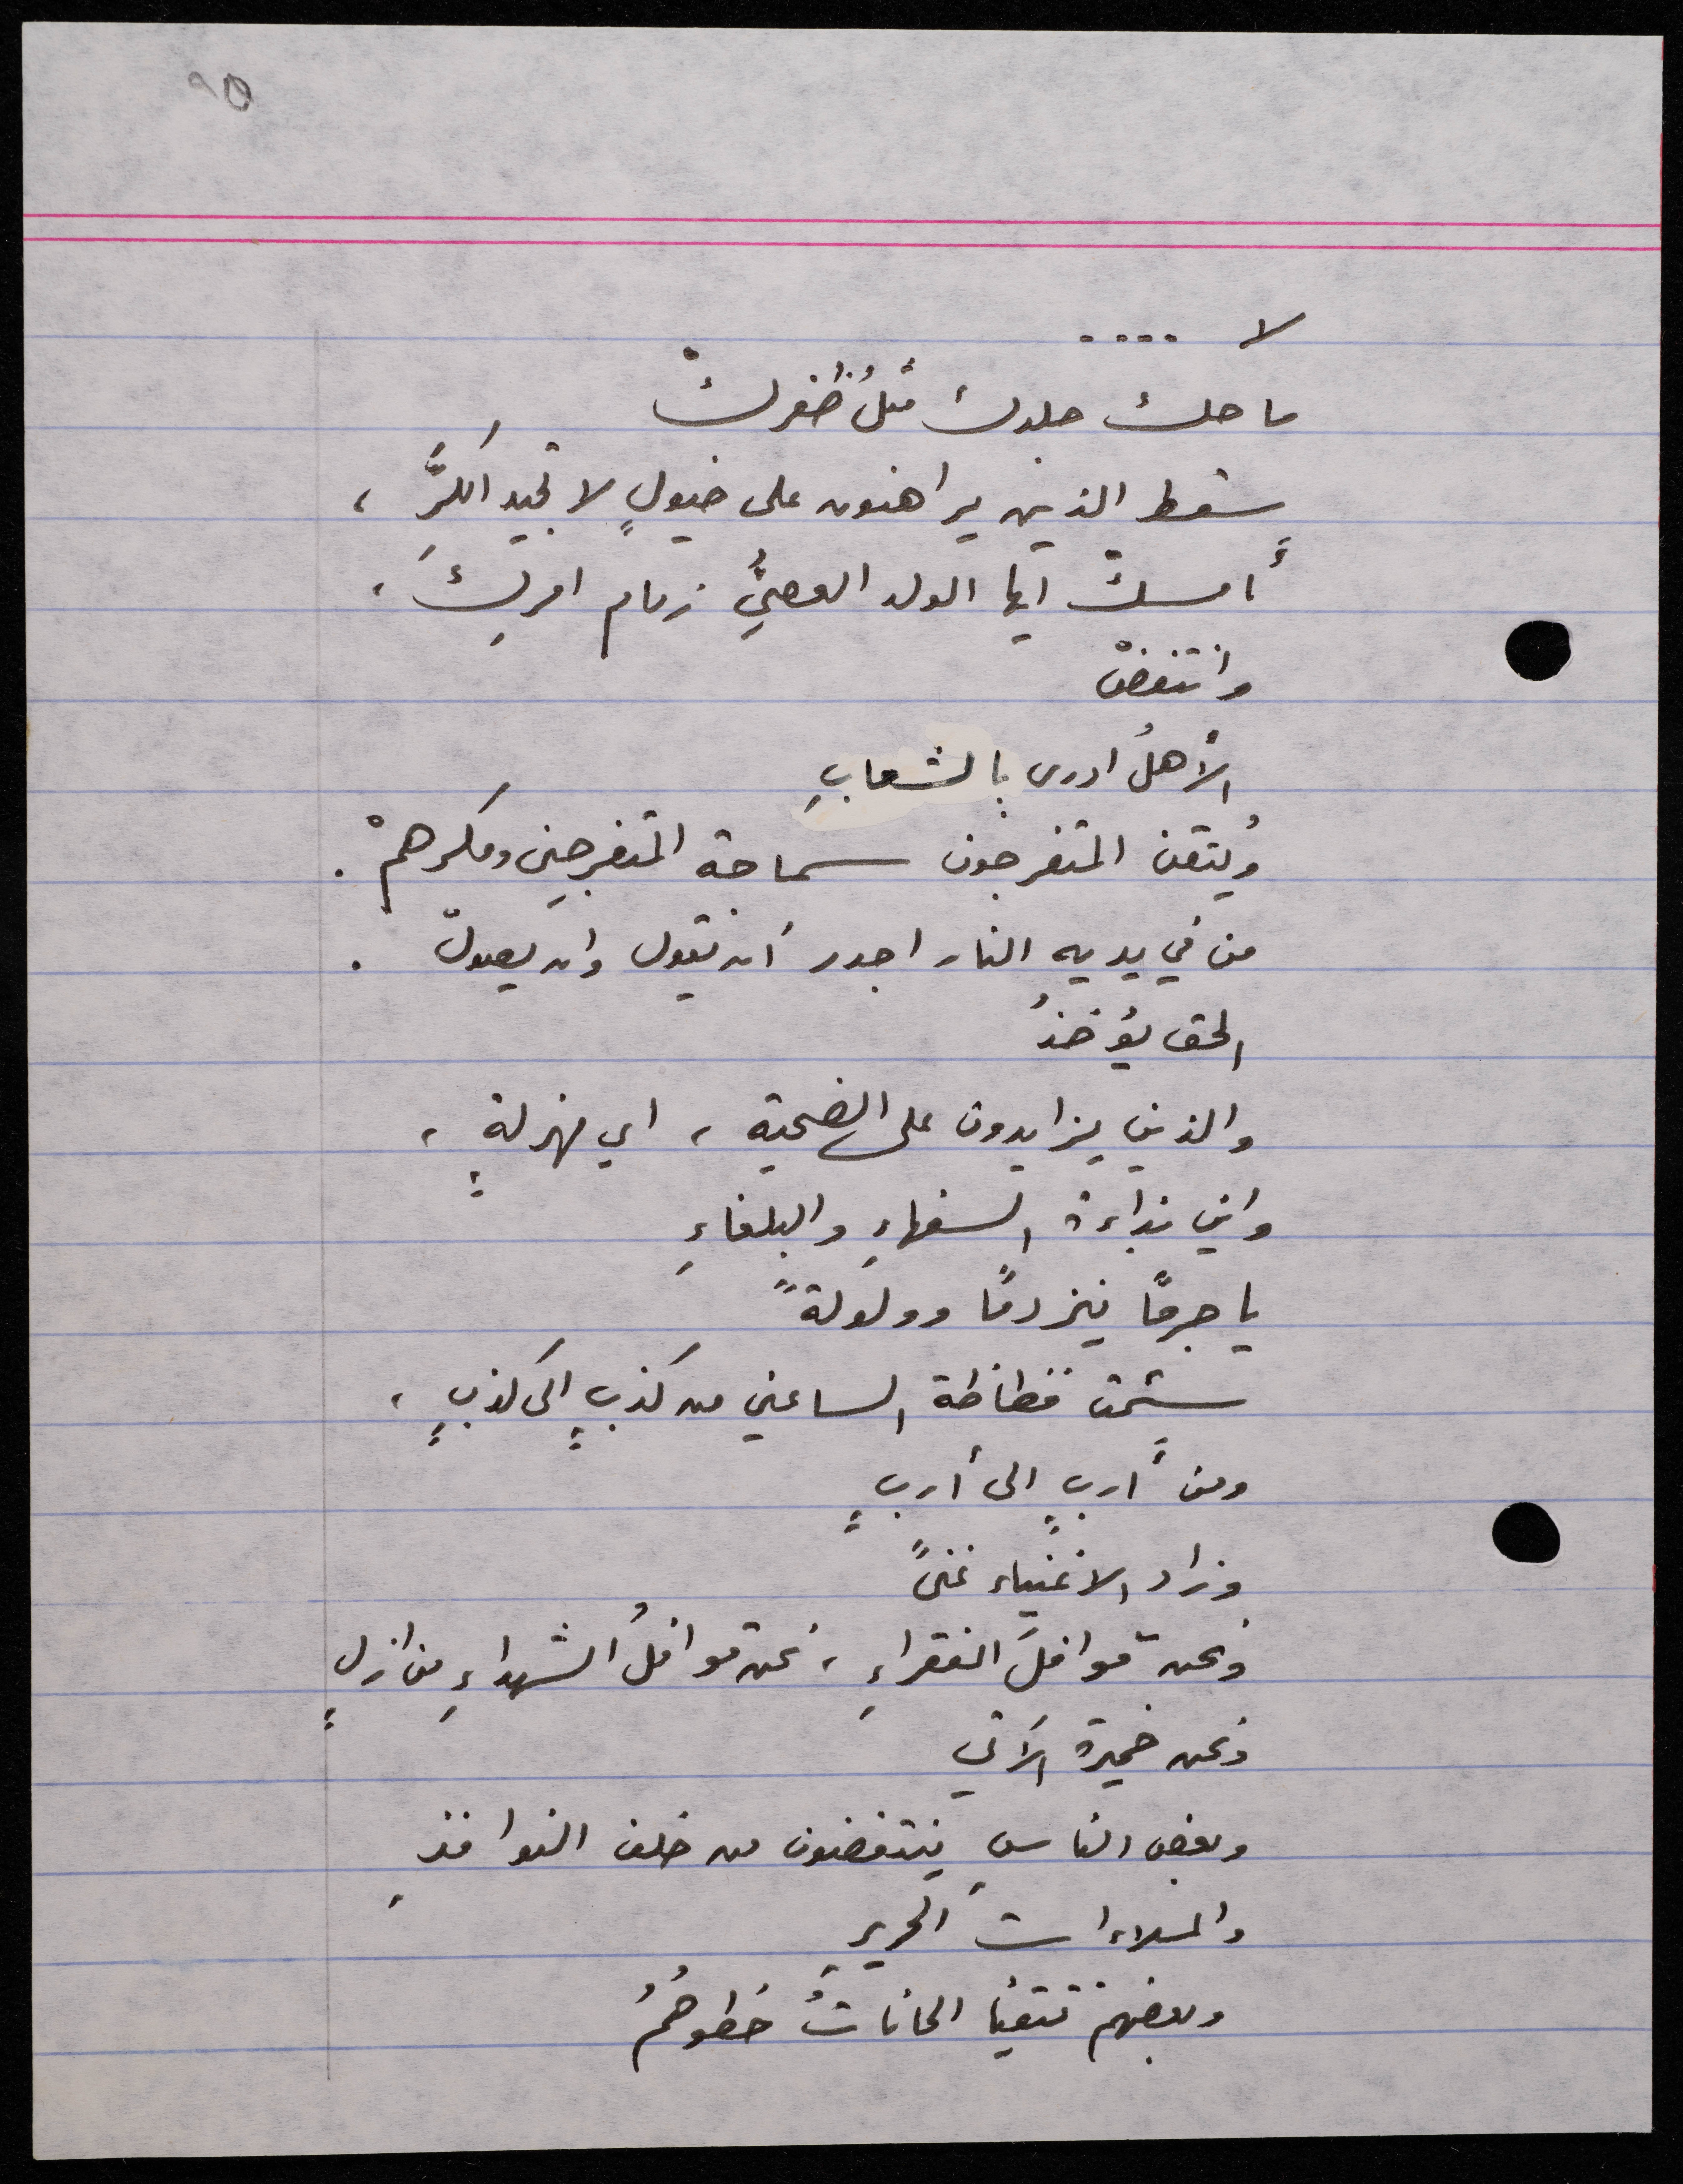 ٩٥
لا ....
ما حك جلدك مثلُ ظفركْ
سقط الذين يراهنون على خيولٍ لا تجيد الكرَّ ،
أمسكْ ايها الولد العصيُّ زمام امرِكَ ،
وانتفضْ
الأهلُ ادرى بالشعابِ
ويُتقن المتفرجون سماجة المتفرجين ومكرهمْ .
من في يديه النار اجدر أن يقول وان يصولْ .
الحق يؤخذُ
والذين يزايدون على الضحية ، اي مهزلةٍ ،
واي بذاءة السفهاءِ والبلغاءِ
يا جرحًا ينز دمًا وولولةً
سئمت فظاظة الساعين من كذبٍ الى كذبٍ ،
ومن أربٍ الى أربٍ
وزاد الاغنياء غنىً
ونحن قوافلَ الفقراءِ ، نحن قوافلُ الشهداءِ من ازلٍ
ونحن خميرة الآتي
وبعض الناسِ ينتفضون من خلف النوافذِ
والملاءات الحريرِ
وبعضهم تتقيأ الحاناتُ خطوهُمُ